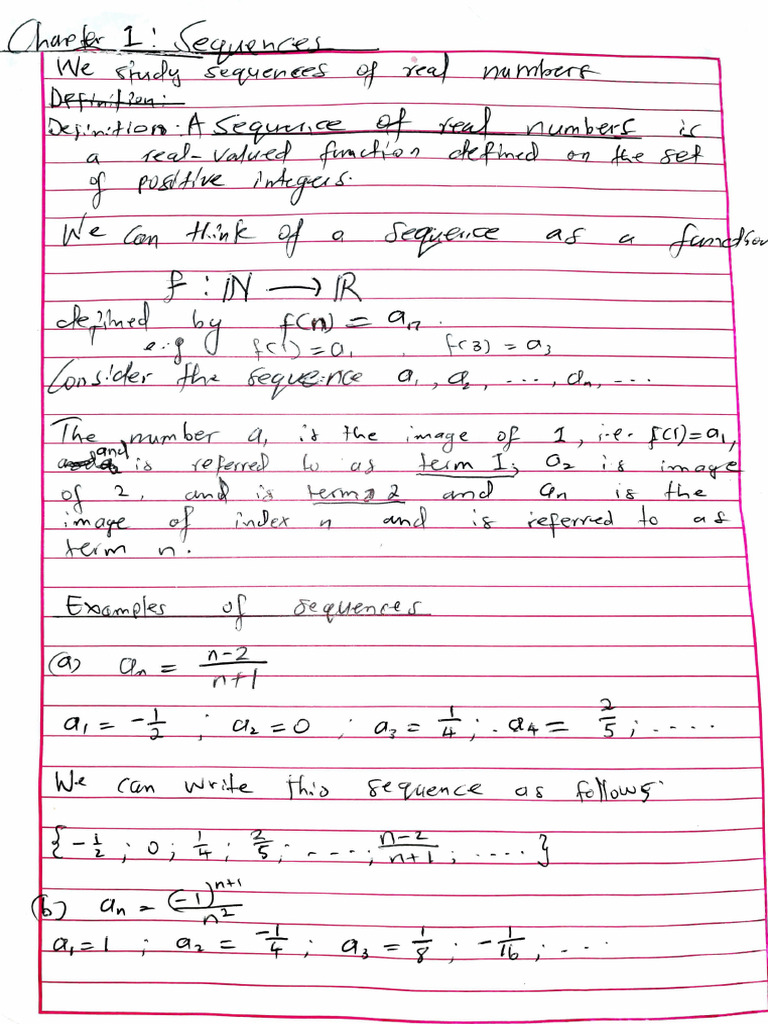 Chapter 1: Sequences
We study sequences of real numbers
Definition:
Definition: A Sequence of real numbers is
a real-valued function defined on the set
of positive integers.
We can think of a sequence as a function
f : ℕ → ℝ
defined by f(n) = aₙ.
e.g f(1) = a₁ , f(3) = a₃
Consider the sequence a₁, a₂, ..., aₙ, ...
The number a₁ is the image of 1, i.e. f(1)=a₁,
and is referred to as term 1; a₂ is image
of 2, and is term 2 and aₙ is the
image of index n and is referred to as
term n.
Examples of sequences
(a) aₙ = (n-2)/(n+1)
a₁ = -1/2 ; a₂ = 0 ; a₃ = 1/4 ; a₄ = 2/5 ; ....
We can write this sequence as follows:
{-1/2 ; 0 ; 1/4 ; 2/5 ; ....; (n-2)/(n+1) ; ....}
(b) aₙ = (-1)ⁿ⁺¹/n²
a₁ = 1 ; a₂ = -1/4 ; a₃ = 1/8 ; -1/16 ; ...